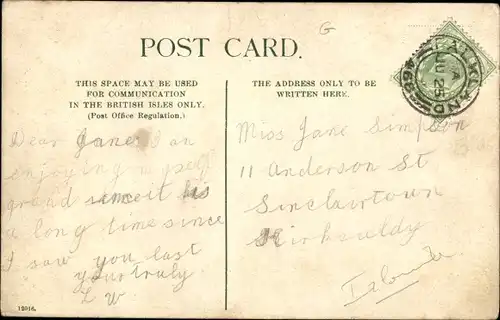 G
POST CARD.
THIS SPACE MAY BE USED
FOR COMMUNICATION
IN THE BRITISH ISLES ONLY.
(Post Office Regulation.)
Dear Jane I an
enjoying myself
grand since it is
a long time since
I saw you last
yours truly
L W
12016.
THE ADDRESS ONLY TO BE
WRITTEN HERE.
Miss Jane Simpson
11 Anderson St
Sinclairtown
Kirkcaldy
FALKLAND
A
JU 25